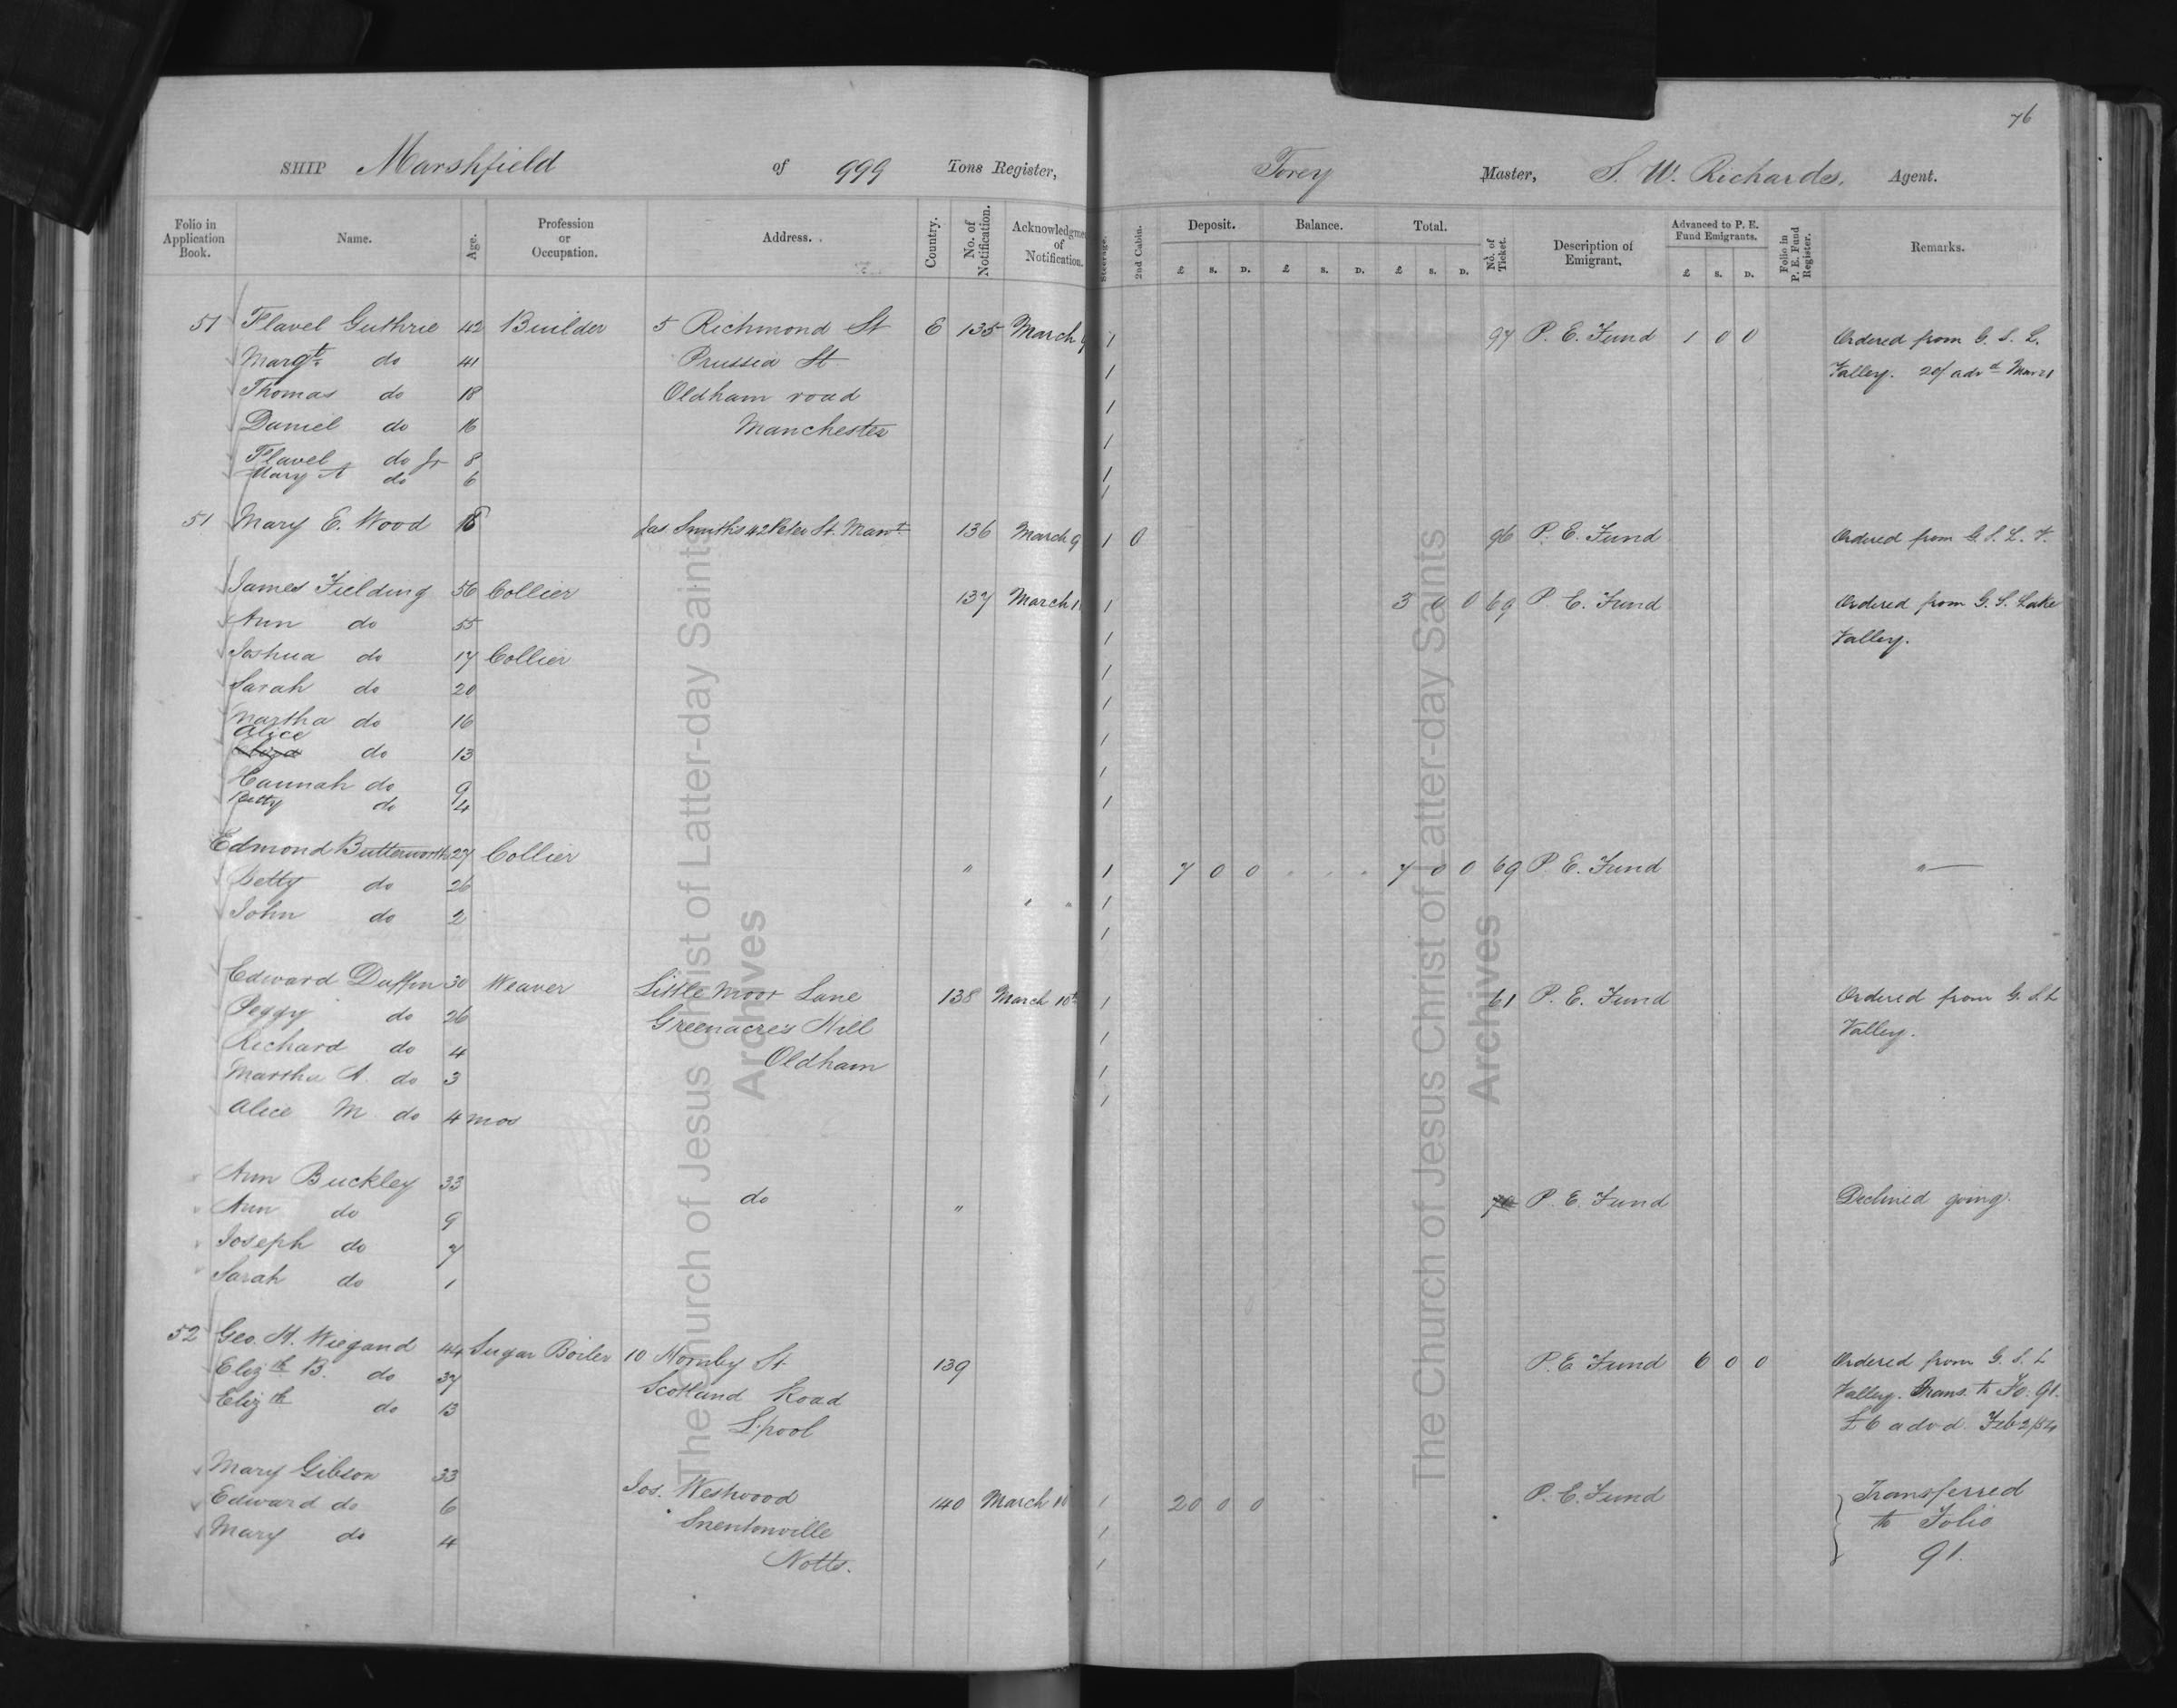 76
SHIP Marshfield of 999 Tons Register, Torey Master, S. W. Richards. Agent.
Folio in Application Book. Name. Age. Profession or Occupation. Address. Country. No. of Notification. Acknowledgme of Notification. Steerage. 2nd Cabin. Deposit. £ S. D. Balance. £ S. D. Total. £ S. D. No. of Ticket. Description of Emigrant. Advanced to P. E. Fund Emigrants. £ S. D. Folio in P. E. Fund Register. Remarks.
51 Flavel Guthrie 42 Builder 5 Richmond St E 135 March 9 1 97 P. E. Fund 1 0 0 Ordered from G. S. L.
Margt. do 41 Prussia St 1 Valley. 20/ advd Mar 21
Thomas do 18 Oldham road 1
Daniel do 16 Manchester 1
Flavel do Jr 8 1
Mary A do 6 1
51 Mary E. Wood 18 Jas. Smith's 42 Peter St. Manr. 136 March 9 1 0 96 P. E. Fund Ordered from G. S. L. V.
James Fielding 56 Collier 137 March 11 1 3 0 0 69 P. E. Fund Ordered from G. S. Lake
Ann do 55 1 Valley.
Joshua do 17 Collier 1
Sarah do 20 1
Martha do 16 1
Alice
do 13 1
Hannah do 9 1
Betty do 4
Edmond Butterworth 27 Collier " 1 7 0 0 7 0 0 69 P. E. Fund "
Betty do 26 1
John do 2 1
Edward Duffin 30 Weaver Little Moor Lane 138 March 10th 1 61 P. E. Fund Ordered from G. S. L
Peggy do 26 Greenacres Hill 1 Valley.
Richard do 4 Oldham 1
Martha A. do 3 1
Alice M do 4 mos
Ann Buckley 33 do " 70 P. E. Fund Declined going.
Ann do 9
Joseph do 7
Sarah do 1
52 Geo. H. Wiegand 44 Sugar Boiler 10 Hornby St 139 P. E Fund 6 0 0 Ordered from G. S. L
Elizth B. do 37 Scotland Road Valley. Trans. to Fo. 91.
Elizth do 13 L'pool £6 advd. Feb 2/54
Mary Gibson 33 Jos. Westwood 140 March 10 1 20 0 0 P. E. Fund Transferred
Edward do 6 Snentonville 1 to Folio
Mary do 4 Notts. 1 91.
The Church of Jesus Christ of Latter-day Saints
Archives
The Church of Jesus Christ of Latter-day Saints
Archives